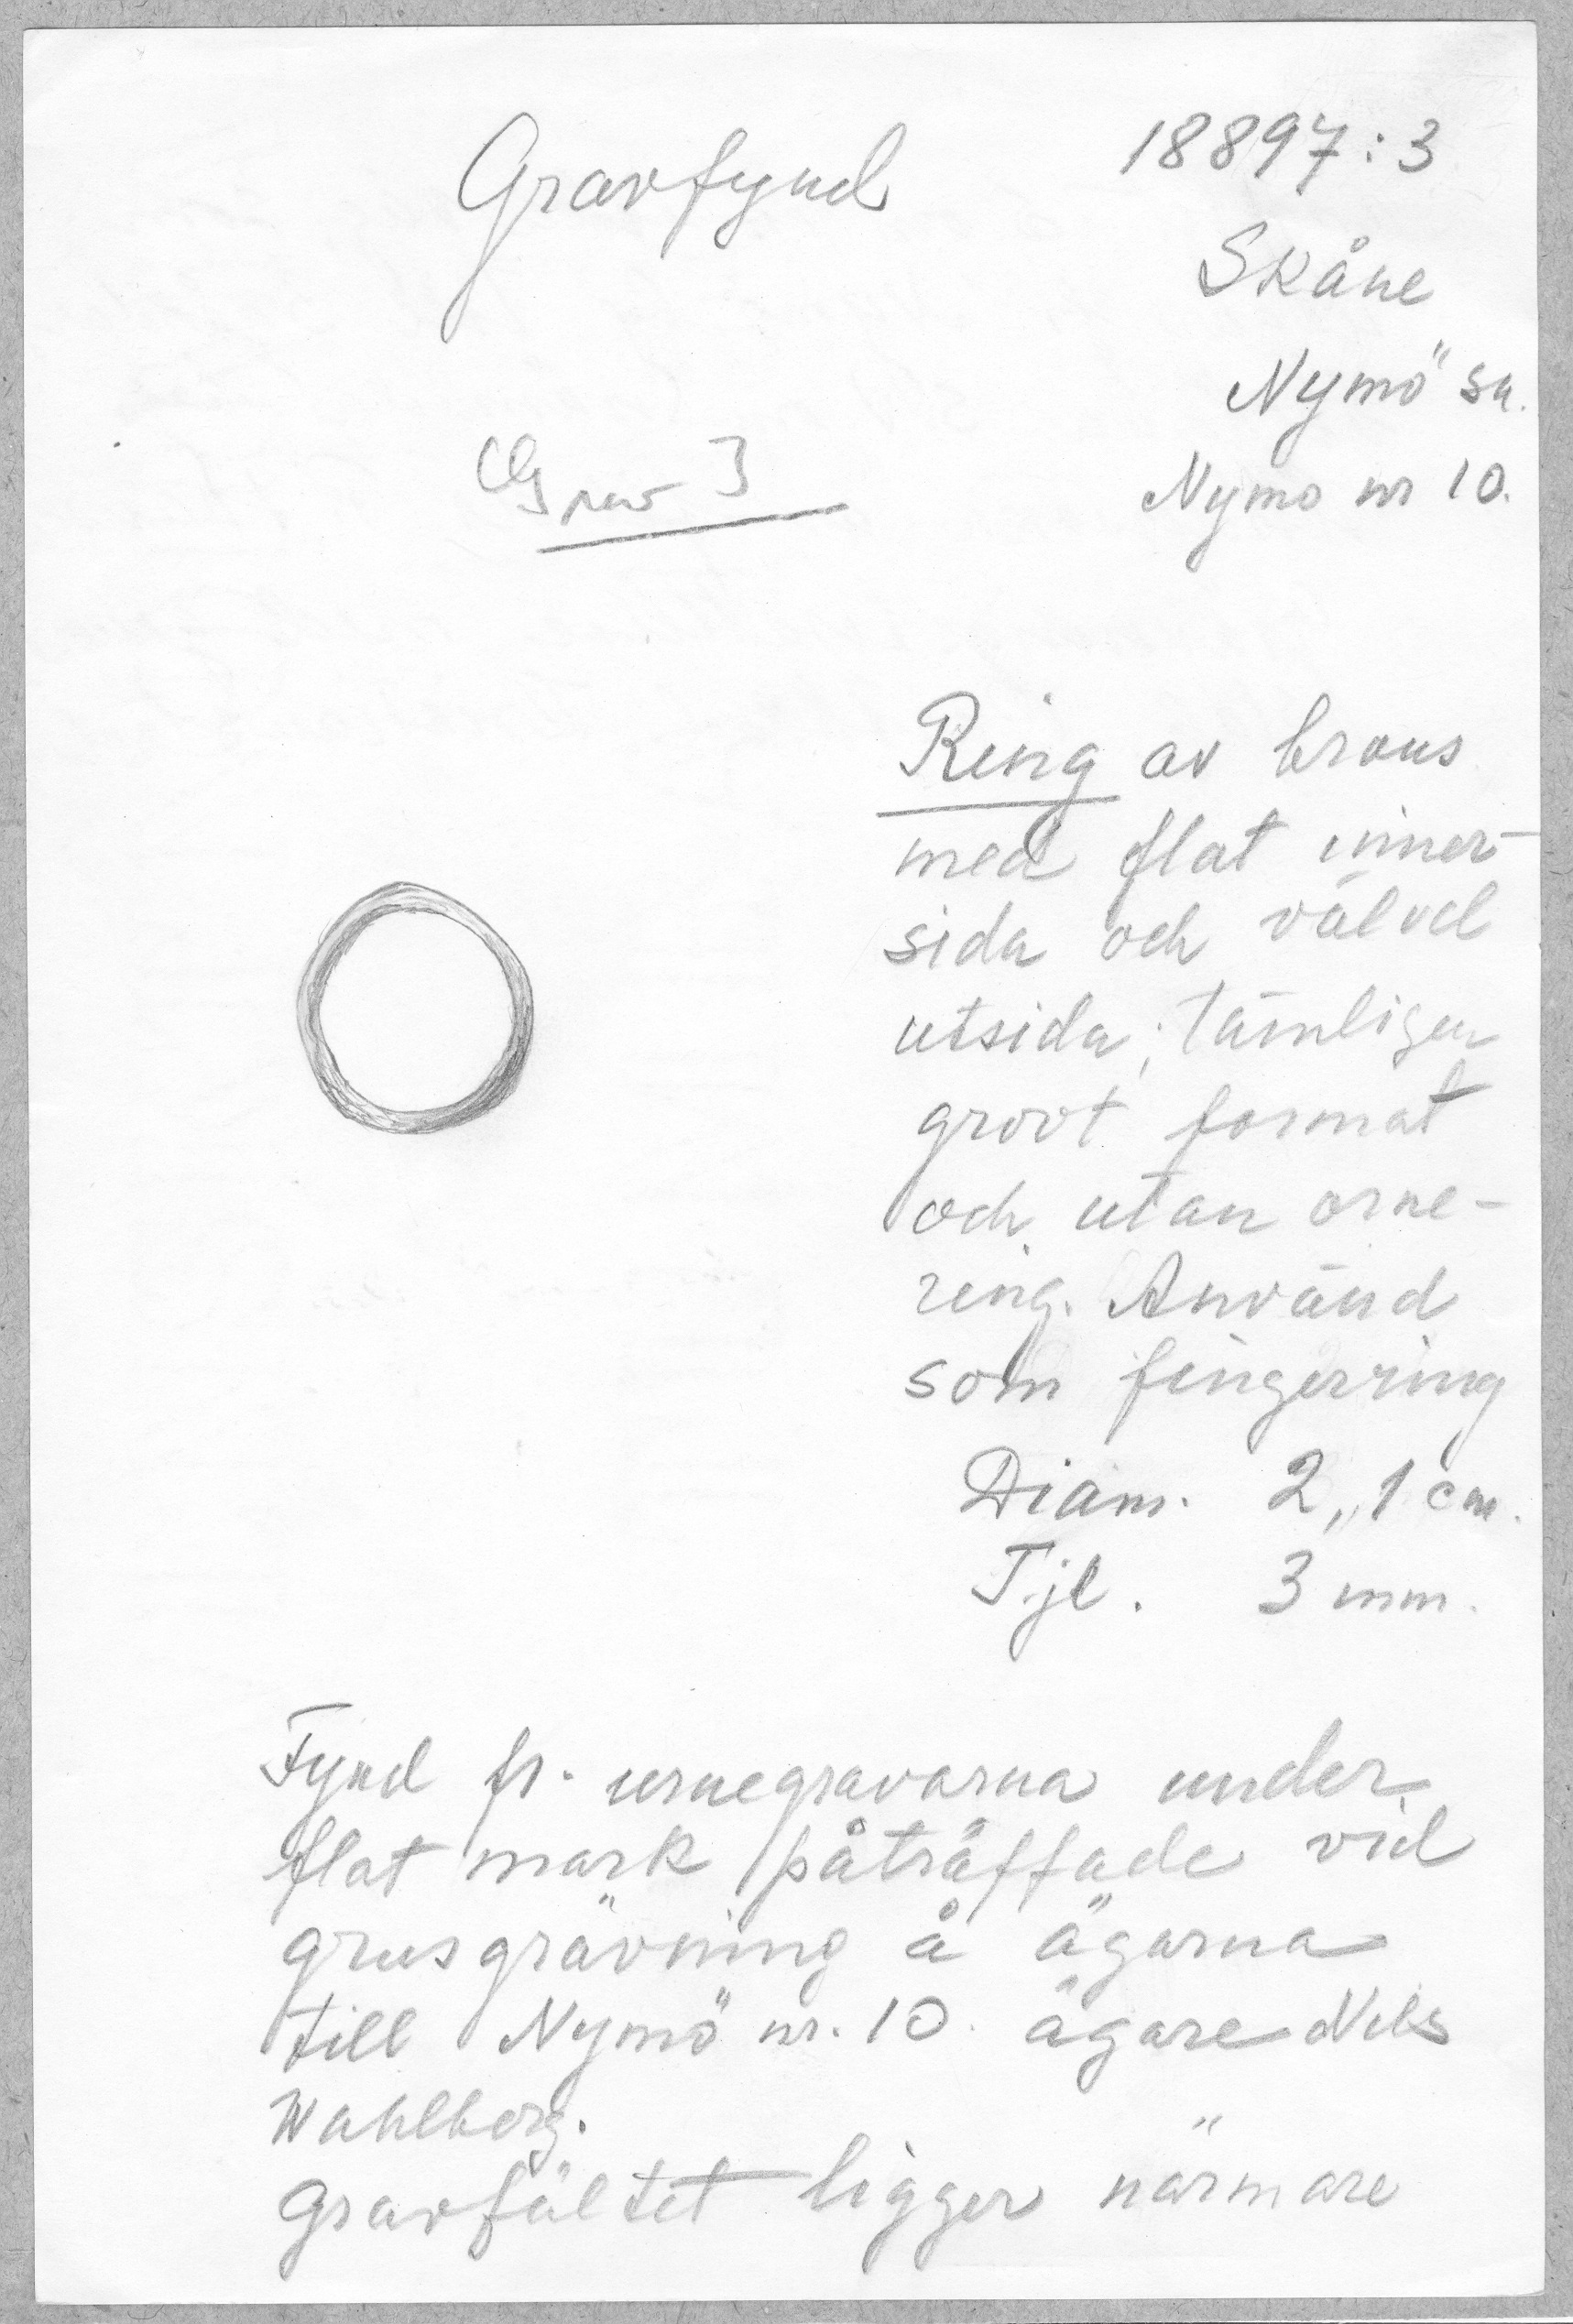 Gravfynd
18897:3
Skåne
Nymö sn.
Nymö nr 10.
Grav 3
Ring av brons
med flat inner-
sida och välvd
utsida; tämligen
grovt format
och utan orne-
ring. Använd
som fingerring
Diam. 2,1 cm.
Tjl. 3 mm.
Fynd fr. urnegravarna under
flat mark påträffade vid
grusgrävning å ägarna
till Nymö nr. 10. ägare Nils
Wahlberg.
Gravfältet ligger närmare